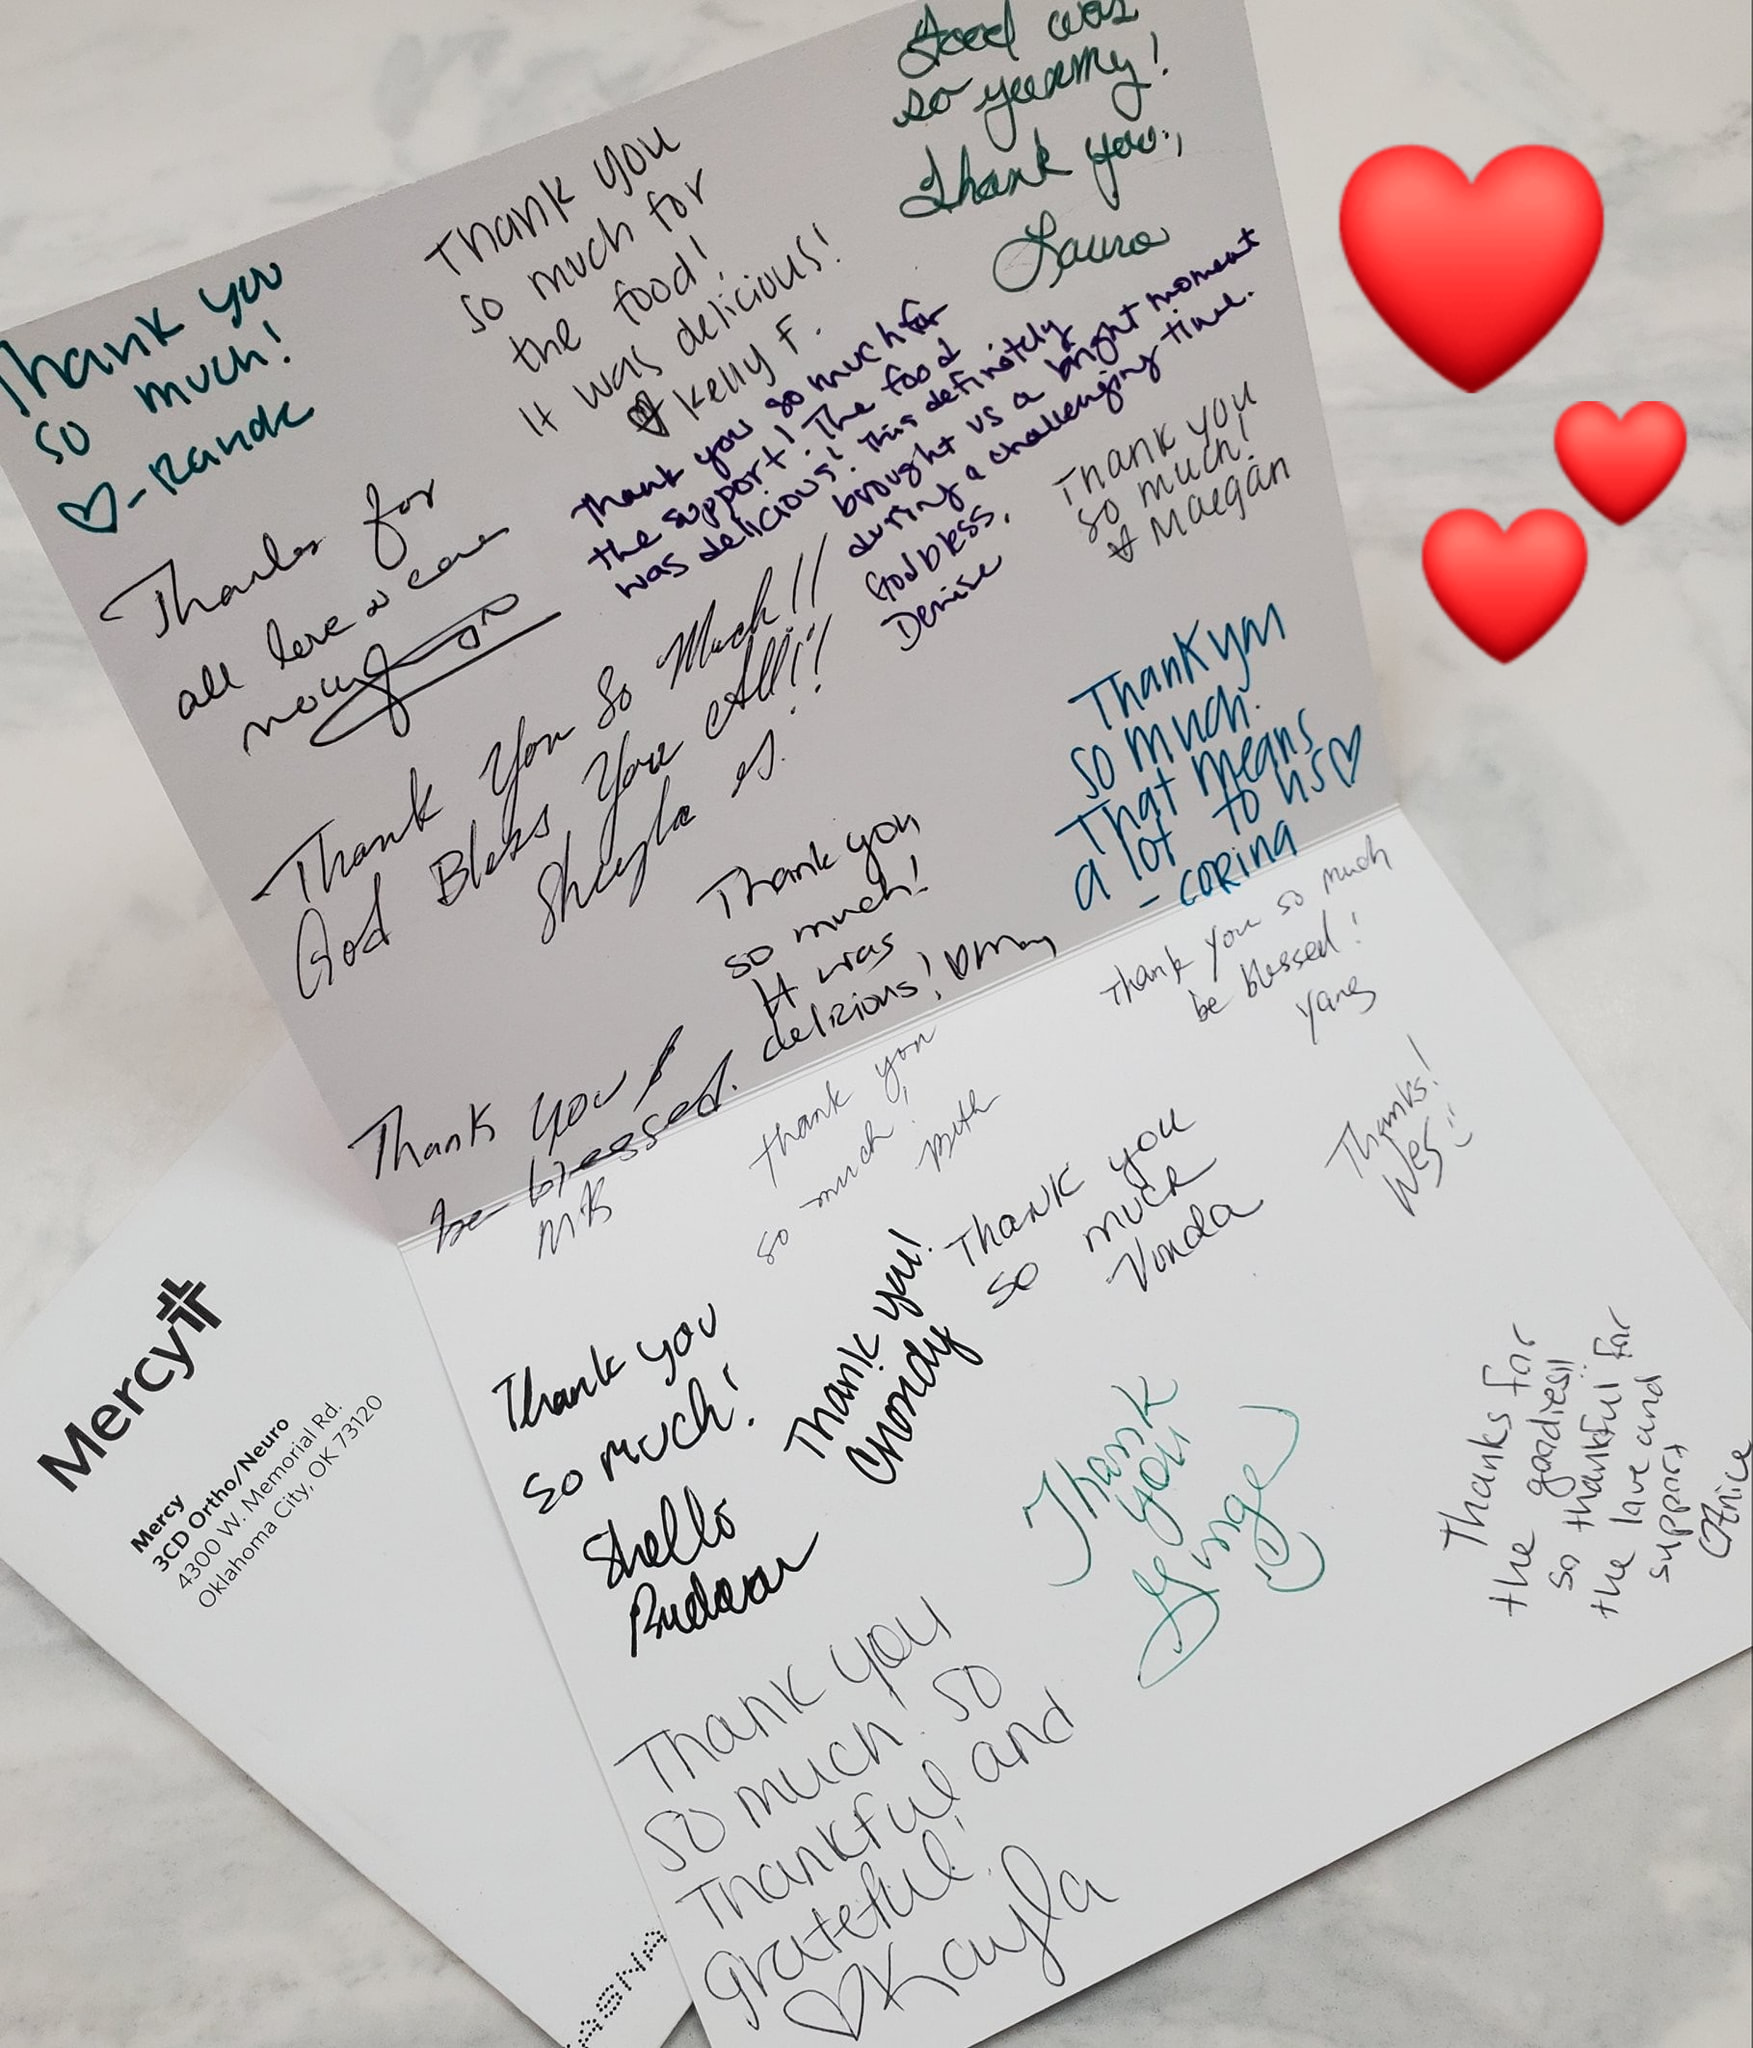 Thank you
so much!
Thank you
so much for
the food!
It was delicious!
Kelly F.
Food was
so yummy!
Thank you,
Laura
Thanks for
all love &
Thank you so much for
the support! The food
was delicious! This definitely
brought us a bright moment
during a challenging time.
God bless,
Denise
Thank you
so much!
Maegan
Thank You So Much!!
God Bless You All!!
Thank you
so much.
That means
a lot to us
- CORINA
Thank you
so much!
It was
delicious!
Thank you &
be blessed.
MB
Thank you so much
be blessed!
Yang
Thank you
so much!
Beth
Thank you
so much
Vonda
Thanks!
Wes
Thank you
so much!
Thank you!
Thank
you
Thanks for
the goodies!!
So thankful for
the love and
support
Thank you
so much. So
Thankful and
grateful.
Kayla
Mercy
Mercy
3CD Ortho/Neuro
4300 W. Memorial Rd.
Oklahoma City, OK 73120